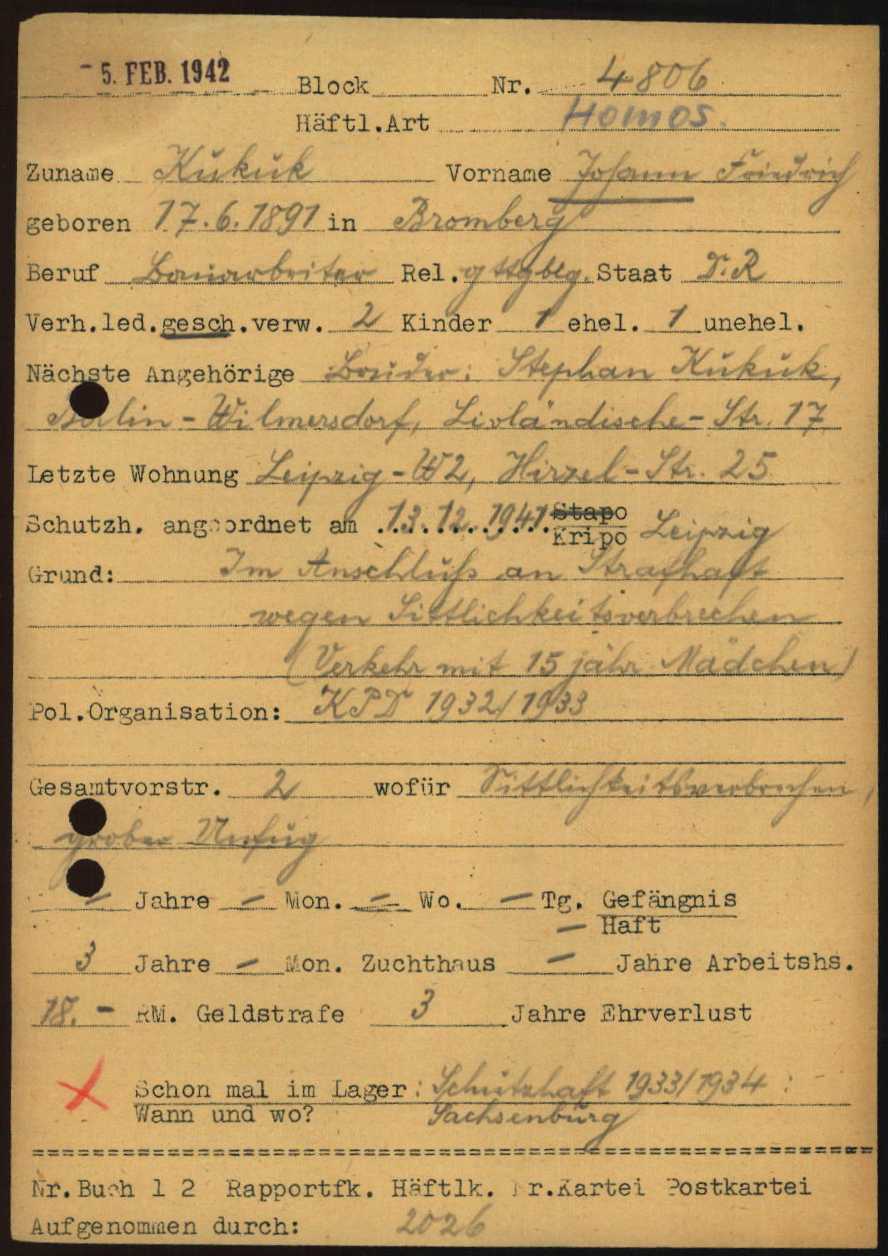 - 5. FEB. 1942
Block Nr. 4806
Häftl.Art Homos.
Zuname Kukuk Vorname Johann Friedrich
geboren 17.6.1891 in Bromberg
Beruf Bauarbeiter Rel. gttgblg. Staat D.R
Verh.led.gesch.verw. 2 Kinder 1 ehel. 1 unehel.
Nächste Angehörige Bruder: Stephan Kukuk,
Berlin-Wilmersdorf, Livländische-Str. 17
Letzte Wohnung Leipzig-W2, Hirzel-Str. 25
Schutzh. angeordnet am 13.12.1941. Stapo
Kripo Leipzig
Grund: Im Anschluß an Strafhaft
wegen Sittlichkeitsverbrechen
(Verkehr mit 15 jähr. Mädchen)
Pol.Organisation: KPD 1932/1933
Gesamtvorstr. 2 wofür Sittlichkeitsverbrechen,
grober Unfug
- Jahre - Mon. - Wo. - Tg. Gefängnis
- Haft
3 Jahre - Mon. Zuchthaus - Jahre Arbeitshs.
18.- RM. Geldstrafe 3 Jahre Ehrverlust
Schon mal im Lager: Schutzhaft 1933/1934:
Wann und wo? Sachsenburg
Nr.Buch 1 2 Rapportfk. Häftlk. Nr.Kartei Postkartei
Aufgenommen durch: 2026